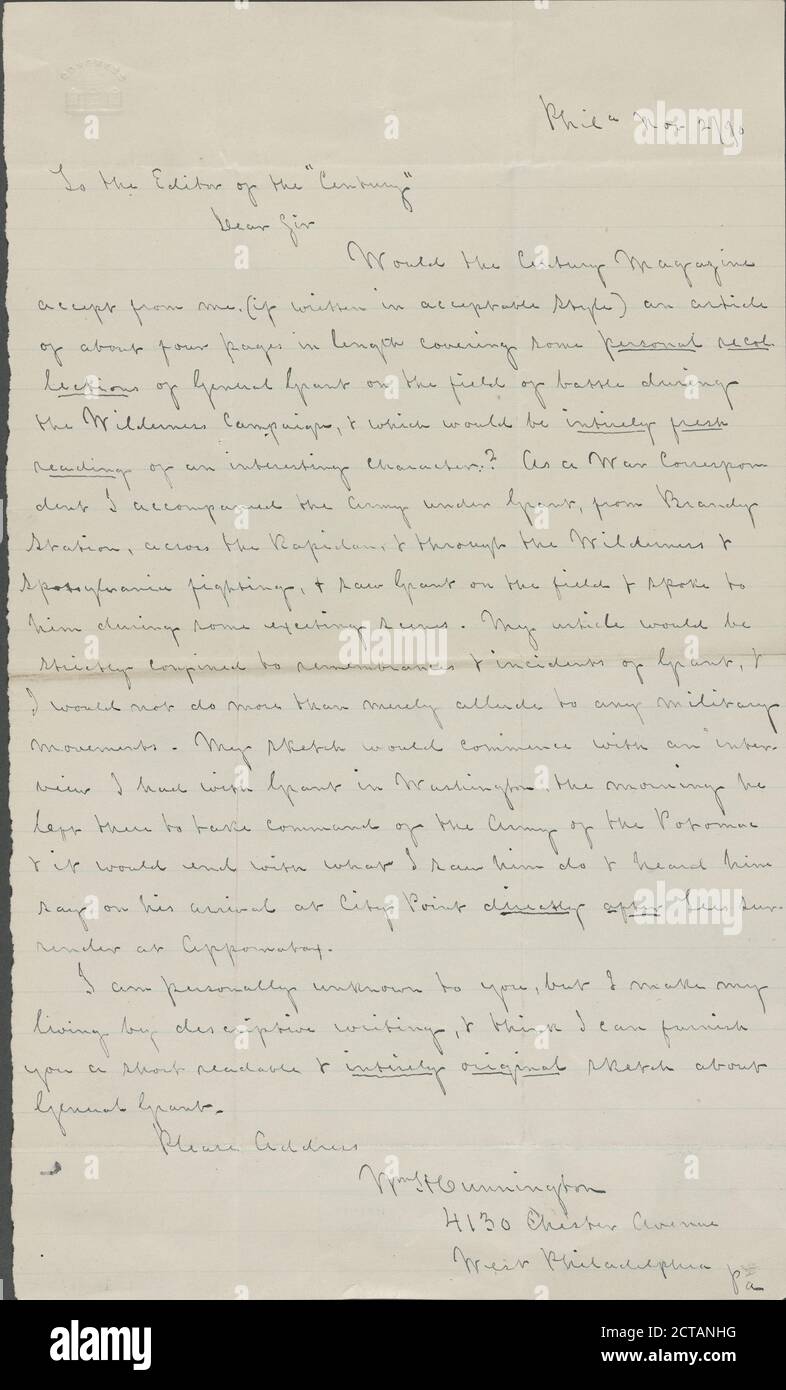 CONGRESS
Phil a Nov 2/90
To the Editor of the "Century"
Dear Sir
Would the Century Magazine
accept from me, (if written in acceptable style) an article
of about four pages in length covering some personal recol-
lections of General Grant on the field of battle during
the Wilderness Campaign, & which would be intirely fresh
reading of an interesting character? As a War Correspon
dent I accompanied the Army under Grant, from Brandy
Station, across the Rapidan, & through the Wilderness &
Spotsylvania fighting, & saw Grant on the field & spoke to
him during some exciting scenes. My article would be
strictly confined to remembrances & incidents of Grant, &
I would not do more than merely allude to any military
movements. My sketch would commence with an inter-
view I had with Grant in Washington, the morning he
left there to take command of the Army of the Potomac
& it would end with what I saw him do & heard him
say on his arrival at City Point directly after Lees sur-
render at Appomatox.
I am personally unknown to you, but I make my
living by descriptive writing, & think I can furnish
you a short readable & intirely original sketch about
General Grant.
Please Address
Wm H Cunnington
4130 Chester Avenue
West Philadelphia Pa
alamy
alamy
alamy
a alamy
Image ID: 2CTANHG
www.alamy.com